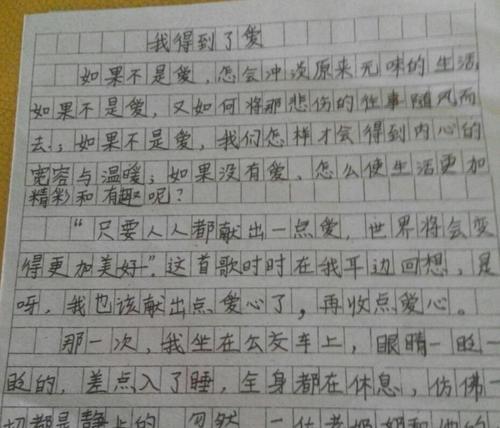 我得到了爱
如果不是爱，怎会冲淡原来无味的生活，
如果不是爱，又如何将那悲伤的往事随风而
去；如果不是爱，我们怎样才会得到内心的
宽容与温暖；如果没有爱、怎么使生活更加
精彩和有趣呢？
“只要人人都献出一点爱，世界将会变
得更加美好”。这首歌时时在我耳边回想，是
呀，我也该献出点爱心了，再收点爱心。
那一次，我坐在公交车上，眼睛一眨一
眨的，差点入了睡，全身都在休息，仿佛
切都是静止的。忽然，一位老奶奶和她的